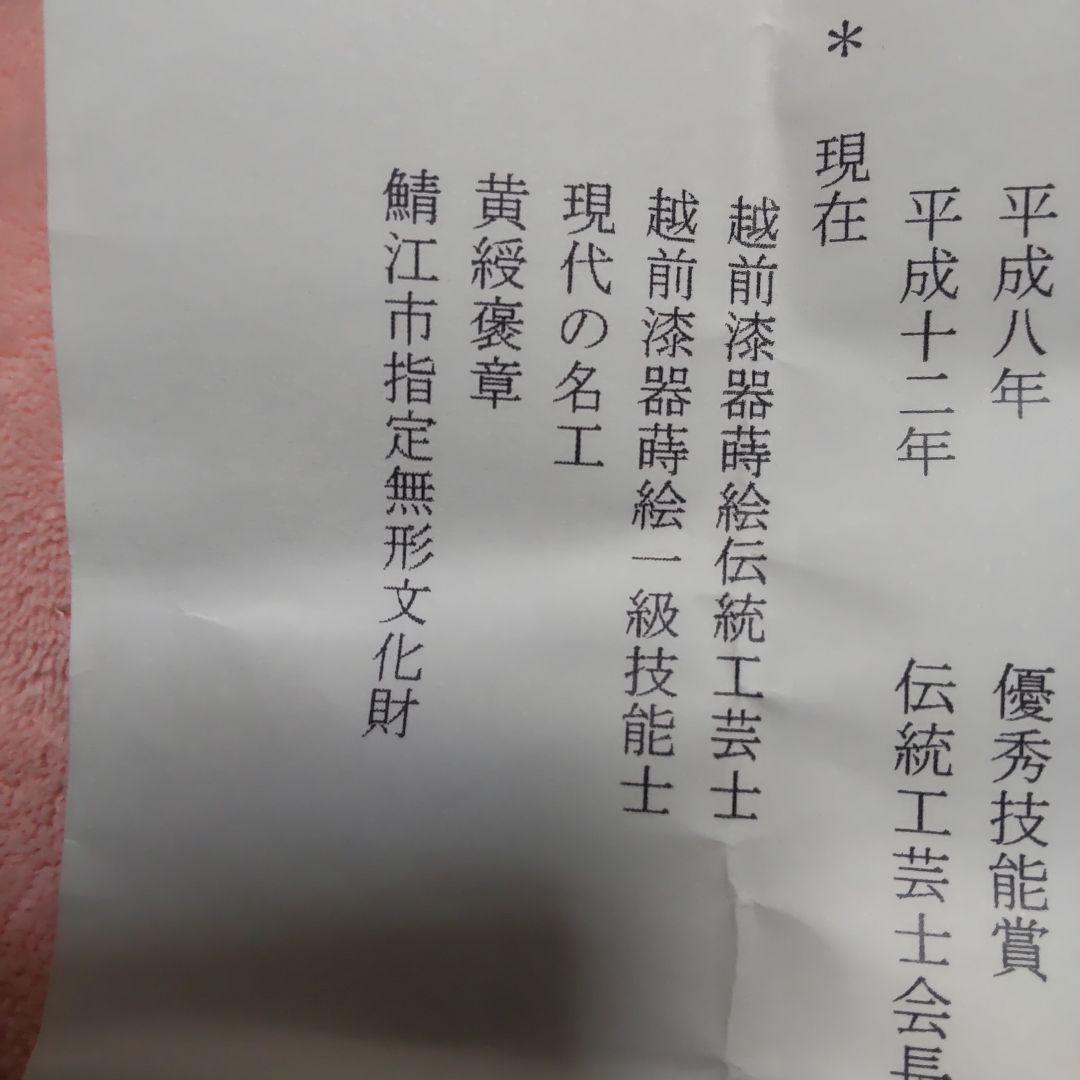 平成八年 優秀技能賞
平成十二年 伝統工芸士会長
＊ 現在
越前漆器蒔絵伝統工芸士
越前漆器蒔絵一級技能士
現代の名工
黄綬褒章
鯖江市指定無形文化財